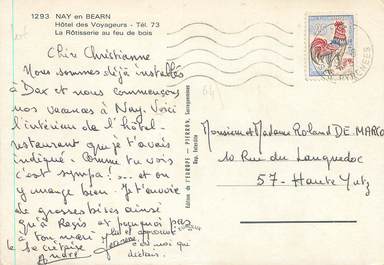 1293 NAY en BEARN
Hôtel des Voyageurs - Tél. 73
La Rôtisserie au feu de bois
Chère Christianne
Nous sommes déjà installés
à Dax et nous commençons
nos vacances à Nay. Voici
l'intérieur de l'hôtel-
restaurant que je t'avais
indiqué. Comme tu vois
c'est sympa!... et on
y mange bien. Je t'envoie
de grosses bises ainsi
qu'à Régis et pourquoi pas
à ton mari
le secrétaire
André
c'est moi qui
dictais.
Édition de l'EUROPE - PIERRON, Sarreguemines
Rep. interdite
PYRENEES
64
Monsieur et Madame Roland DE MARCO
10 Rue du Languedoc
57 - Haute Yutz